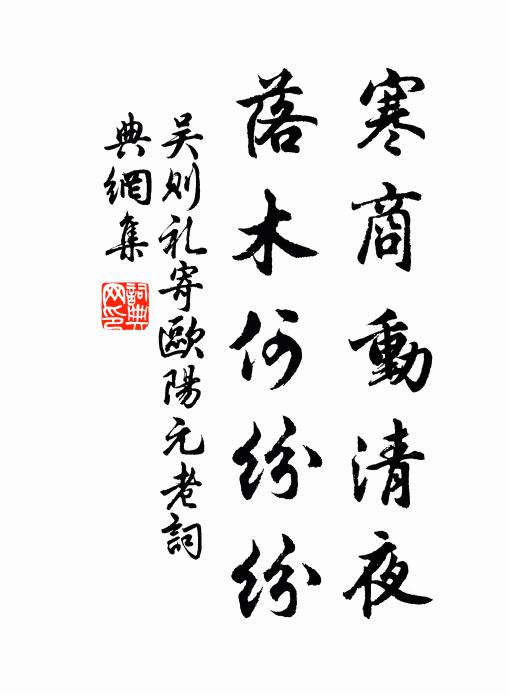 寒商動清夜
落木何紛紛
吴则礼寄歐陽元老詞
典網集
詞典
网印